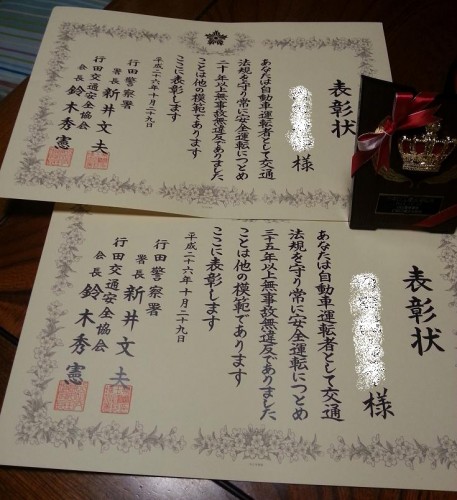 表彰状
様
あなたは自動車運転者として交通
法規を守り常に安全運転につとめ
二十年以上無事故無違反でありました
ことは他の模範であります
ここに表彰します
平成二十六年十月二十九日
行田警察署
署長 新井文夫
行田交通安全協会
会長 鈴木秀憲
表彰状
様
あなたは自動車運転者として交通
法規を守り常に安全運転につとめ
三十五年以上無事故無違反でありました
ことは他の模範であります
ここに表彰します
平成二十六年十月二十九日
行田警察署
署長 新井文夫
行田交通安全協会
会長 鈴木秀憲